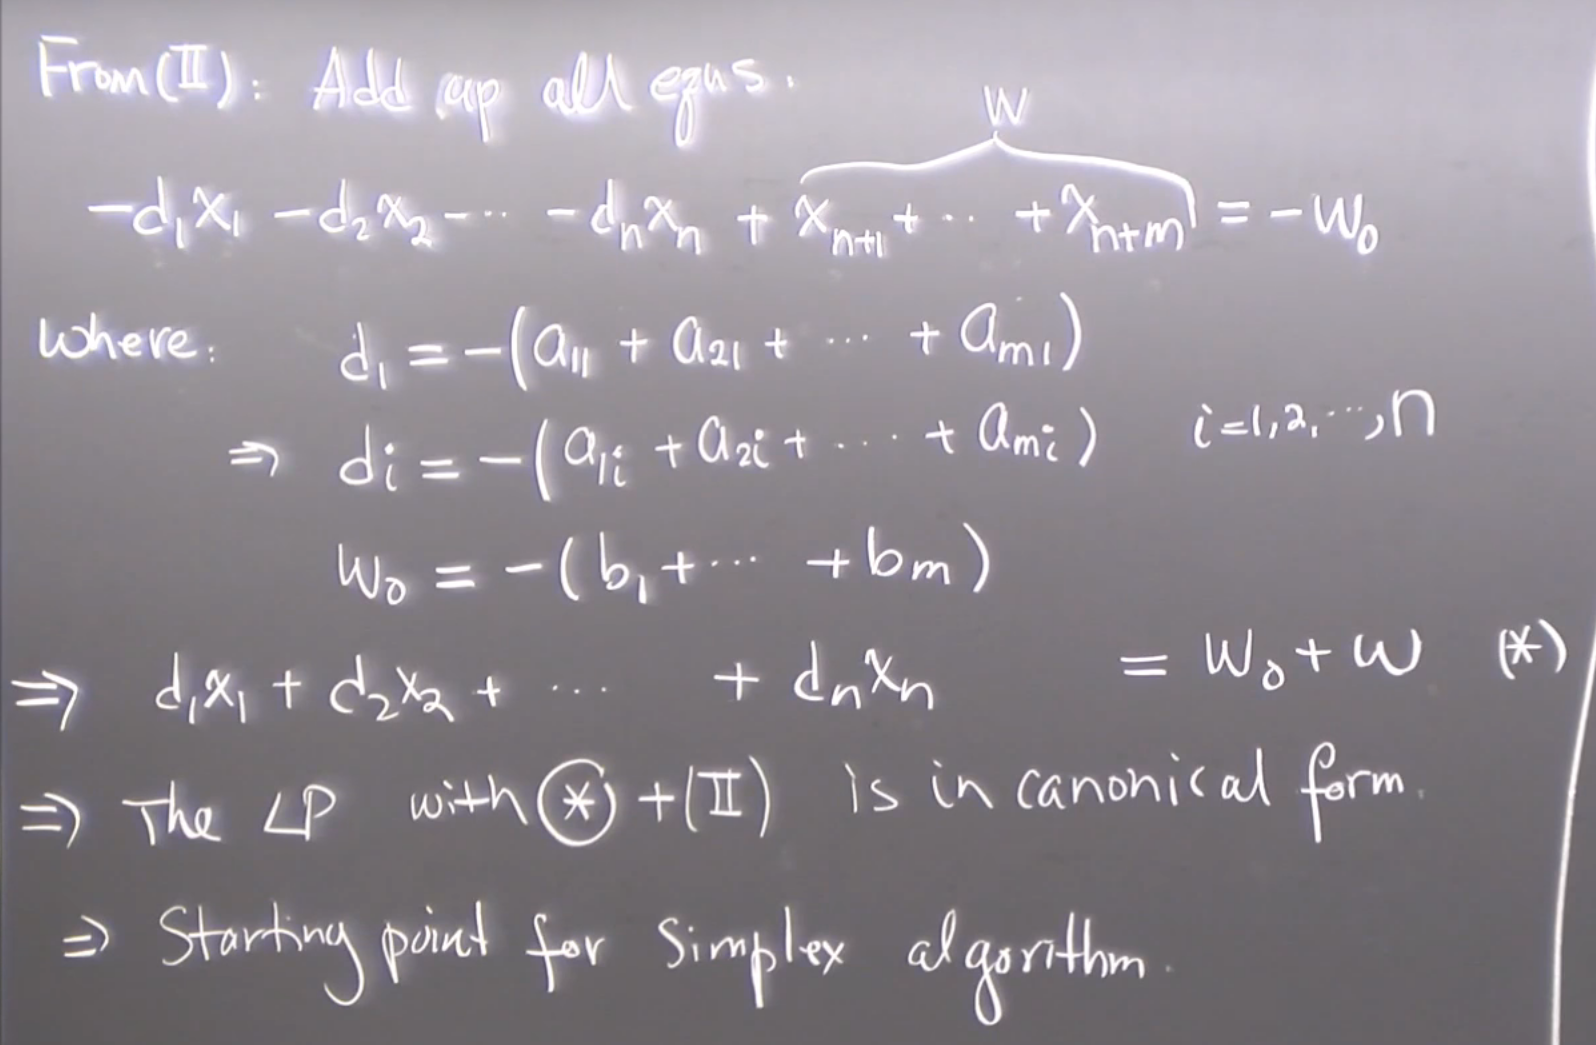 From (II): Add up all eqns.
W
-d₁x₁ -d₂x₂ -··· -dₙxₙ + xₙ₊₁ + ··· + xₙ₊ₘ = -W₀
where: d₁ = -(a₁₁ + a₂₁ + ··· + aₘ₁)
⇒ dᵢ = -(a₁ᵢ + a₂ᵢ + ··· + aₘᵢ) i=1,2,···,n
W₀ = -(b₁ + ··· + bₘ)
⇒ d₁x₁ + d₂x₂ + ··· + dₙxₙ = W₀ + W (*)
⇒ The LP with (*) + (II) is in canonical form.
⇒ Starting point for Simplex algorithm.